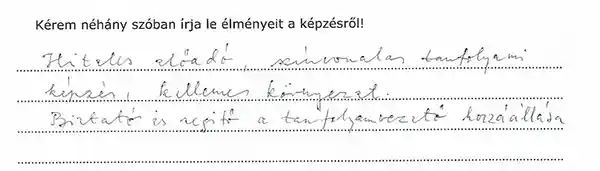 Kérem néhány szóban írja le élményeit a képzésről!
Hiteles előadó, színvonalas tanfolyami
képzés, kellemes környezet.
Biztató és segítő a tanfolyamvezető hozzáállása